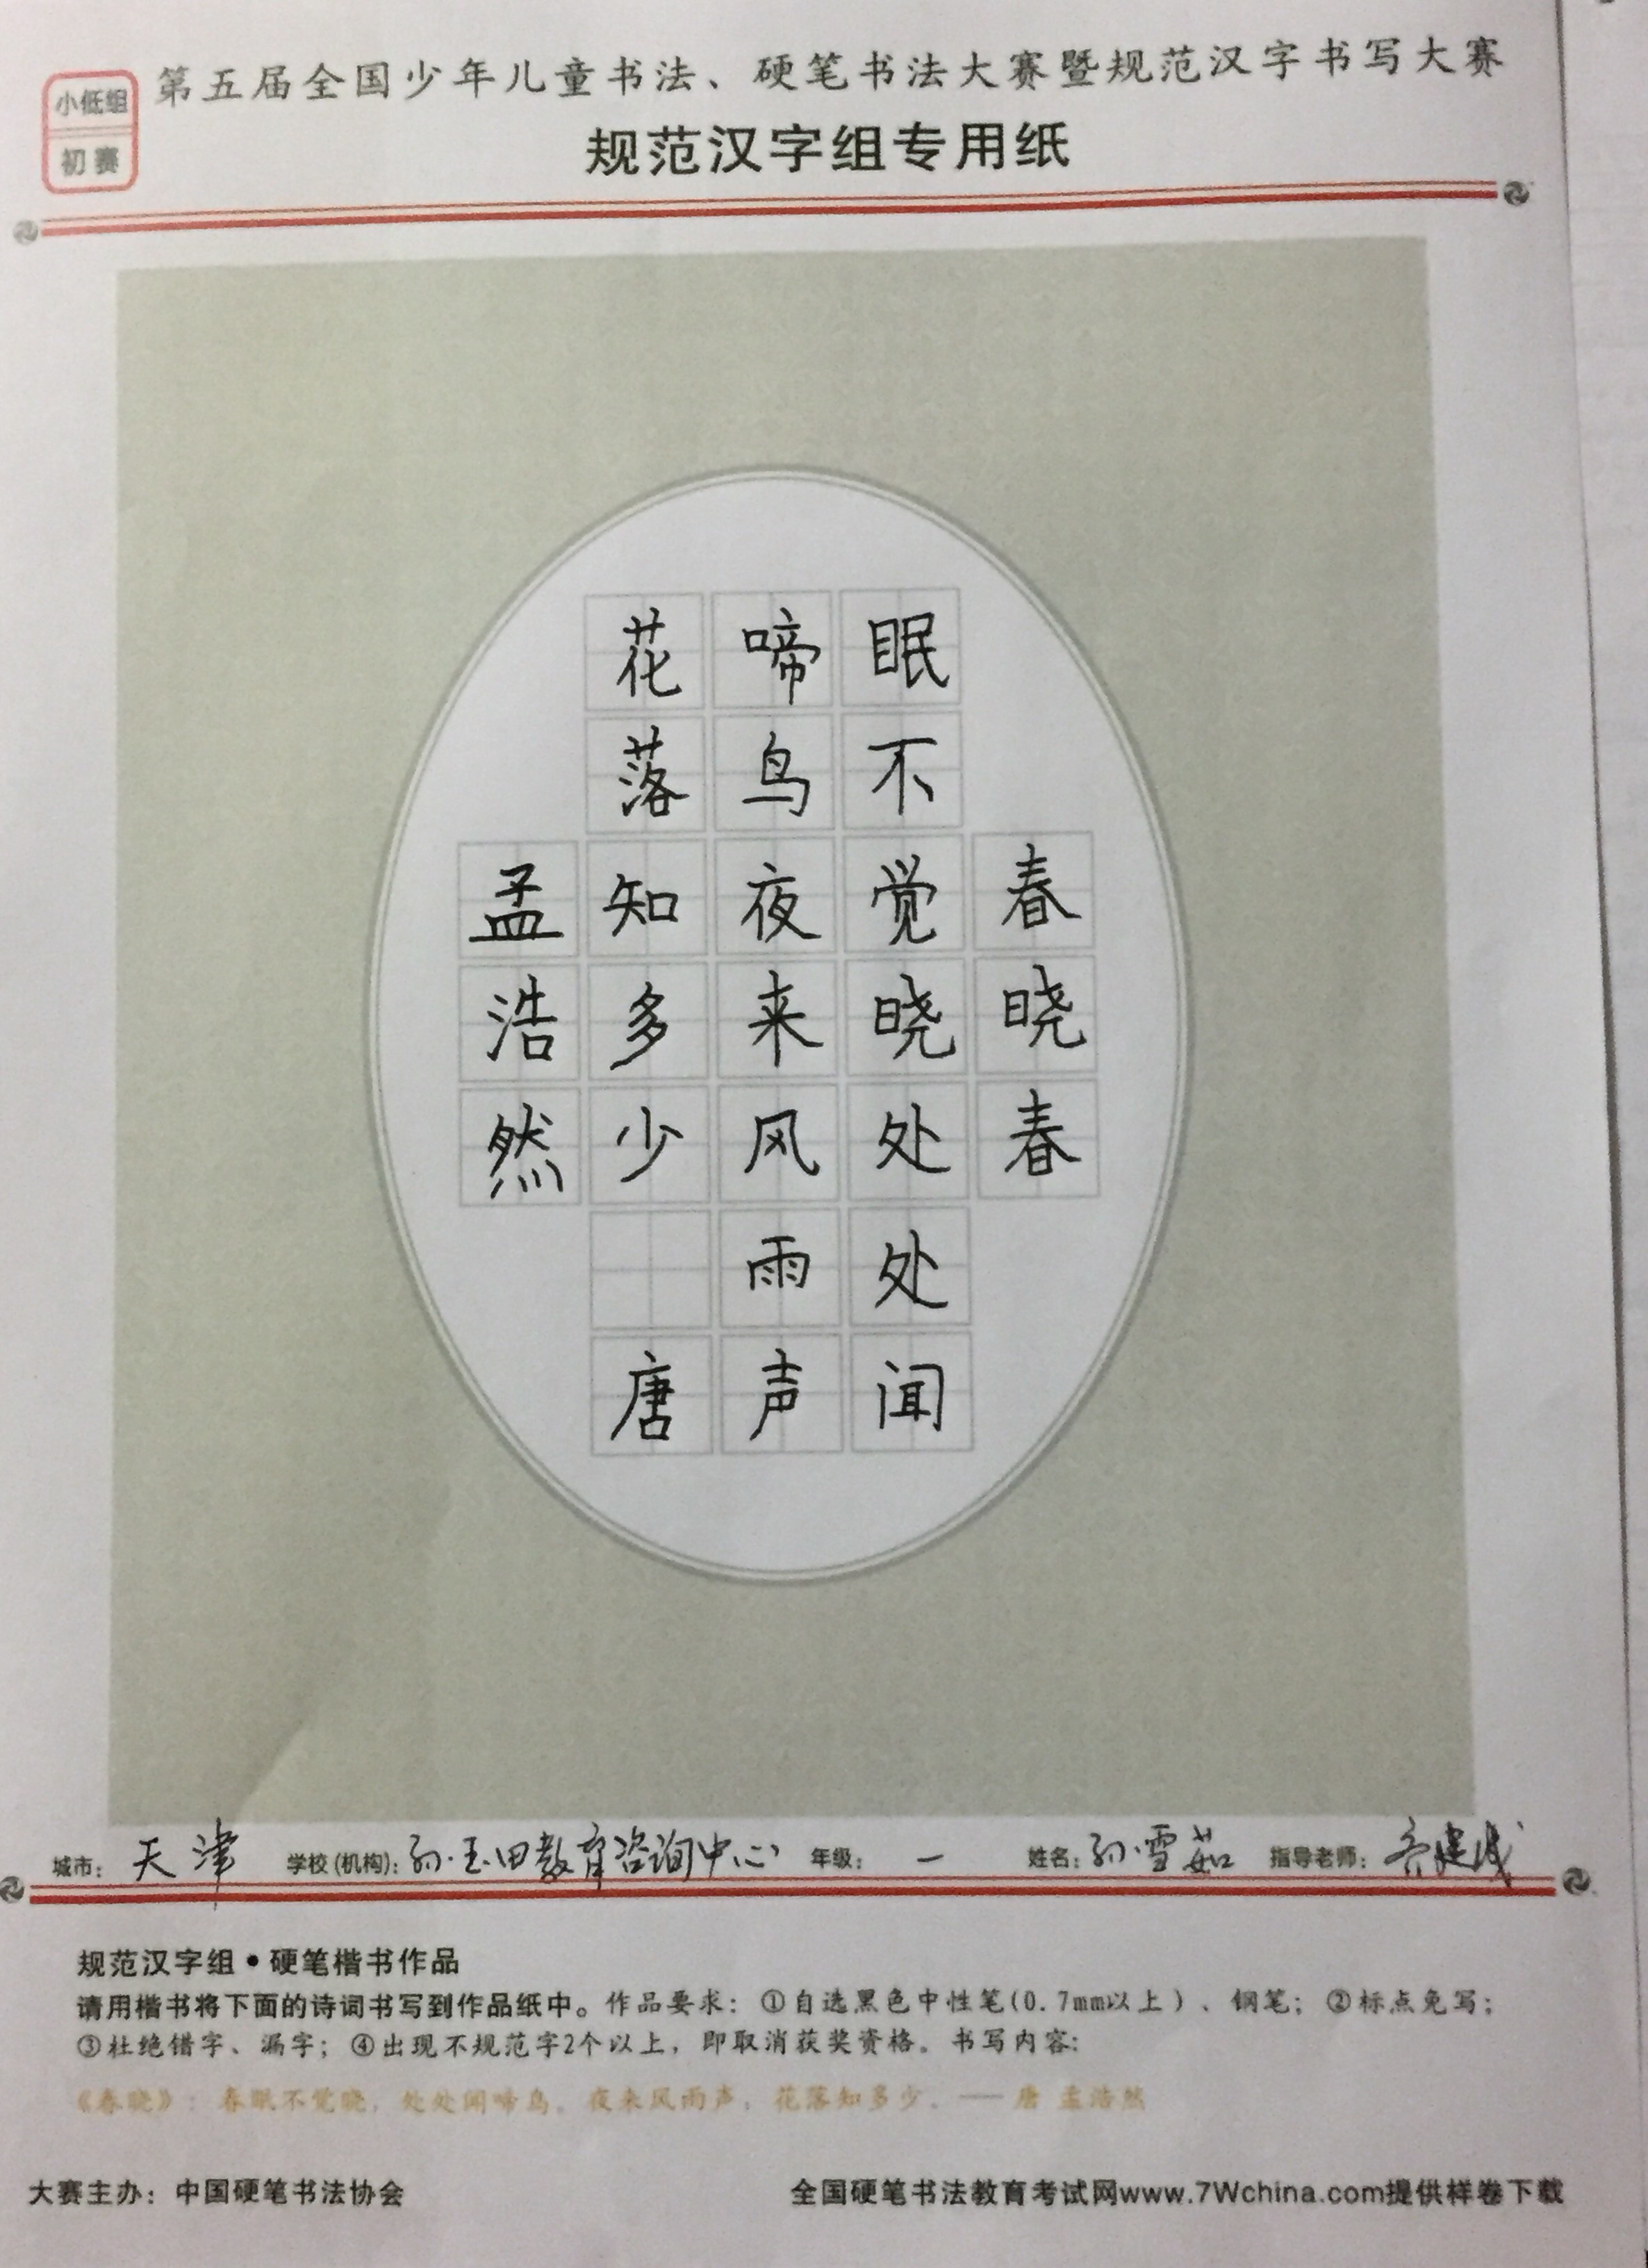 小低组
初赛
第五届全国少年儿童书法、硬笔书法大赛暨规范汉字书写大赛
规范汉字组专用纸
春晓春
眠不觉晓处处闻
啼鸟夜来风雨声
花落知多少 唐
孟浩然
城市：天津 学校(机构)：孙玉田教育咨询中心 年级：一 姓名：孙雪茹 指导老师：齐建成
规范汉字组•硬笔楷书作品
请用楷书将下面的诗词书写到作品纸中。作品要求：①自选黑色中性笔(0.7mm以上)、钢笔；②标点免写；
③杜绝错字、漏字；④出现不规范字2个以上，即取消获奖资格。书写内容：
《春晓》：春眠不觉晓，处处闻啼鸟。夜来风雨声，花落知多少。——唐 孟浩然
大赛主办：中国硬笔书法协会
全国硬笔书法教育考试网www.7Wchina.com提供样卷下载